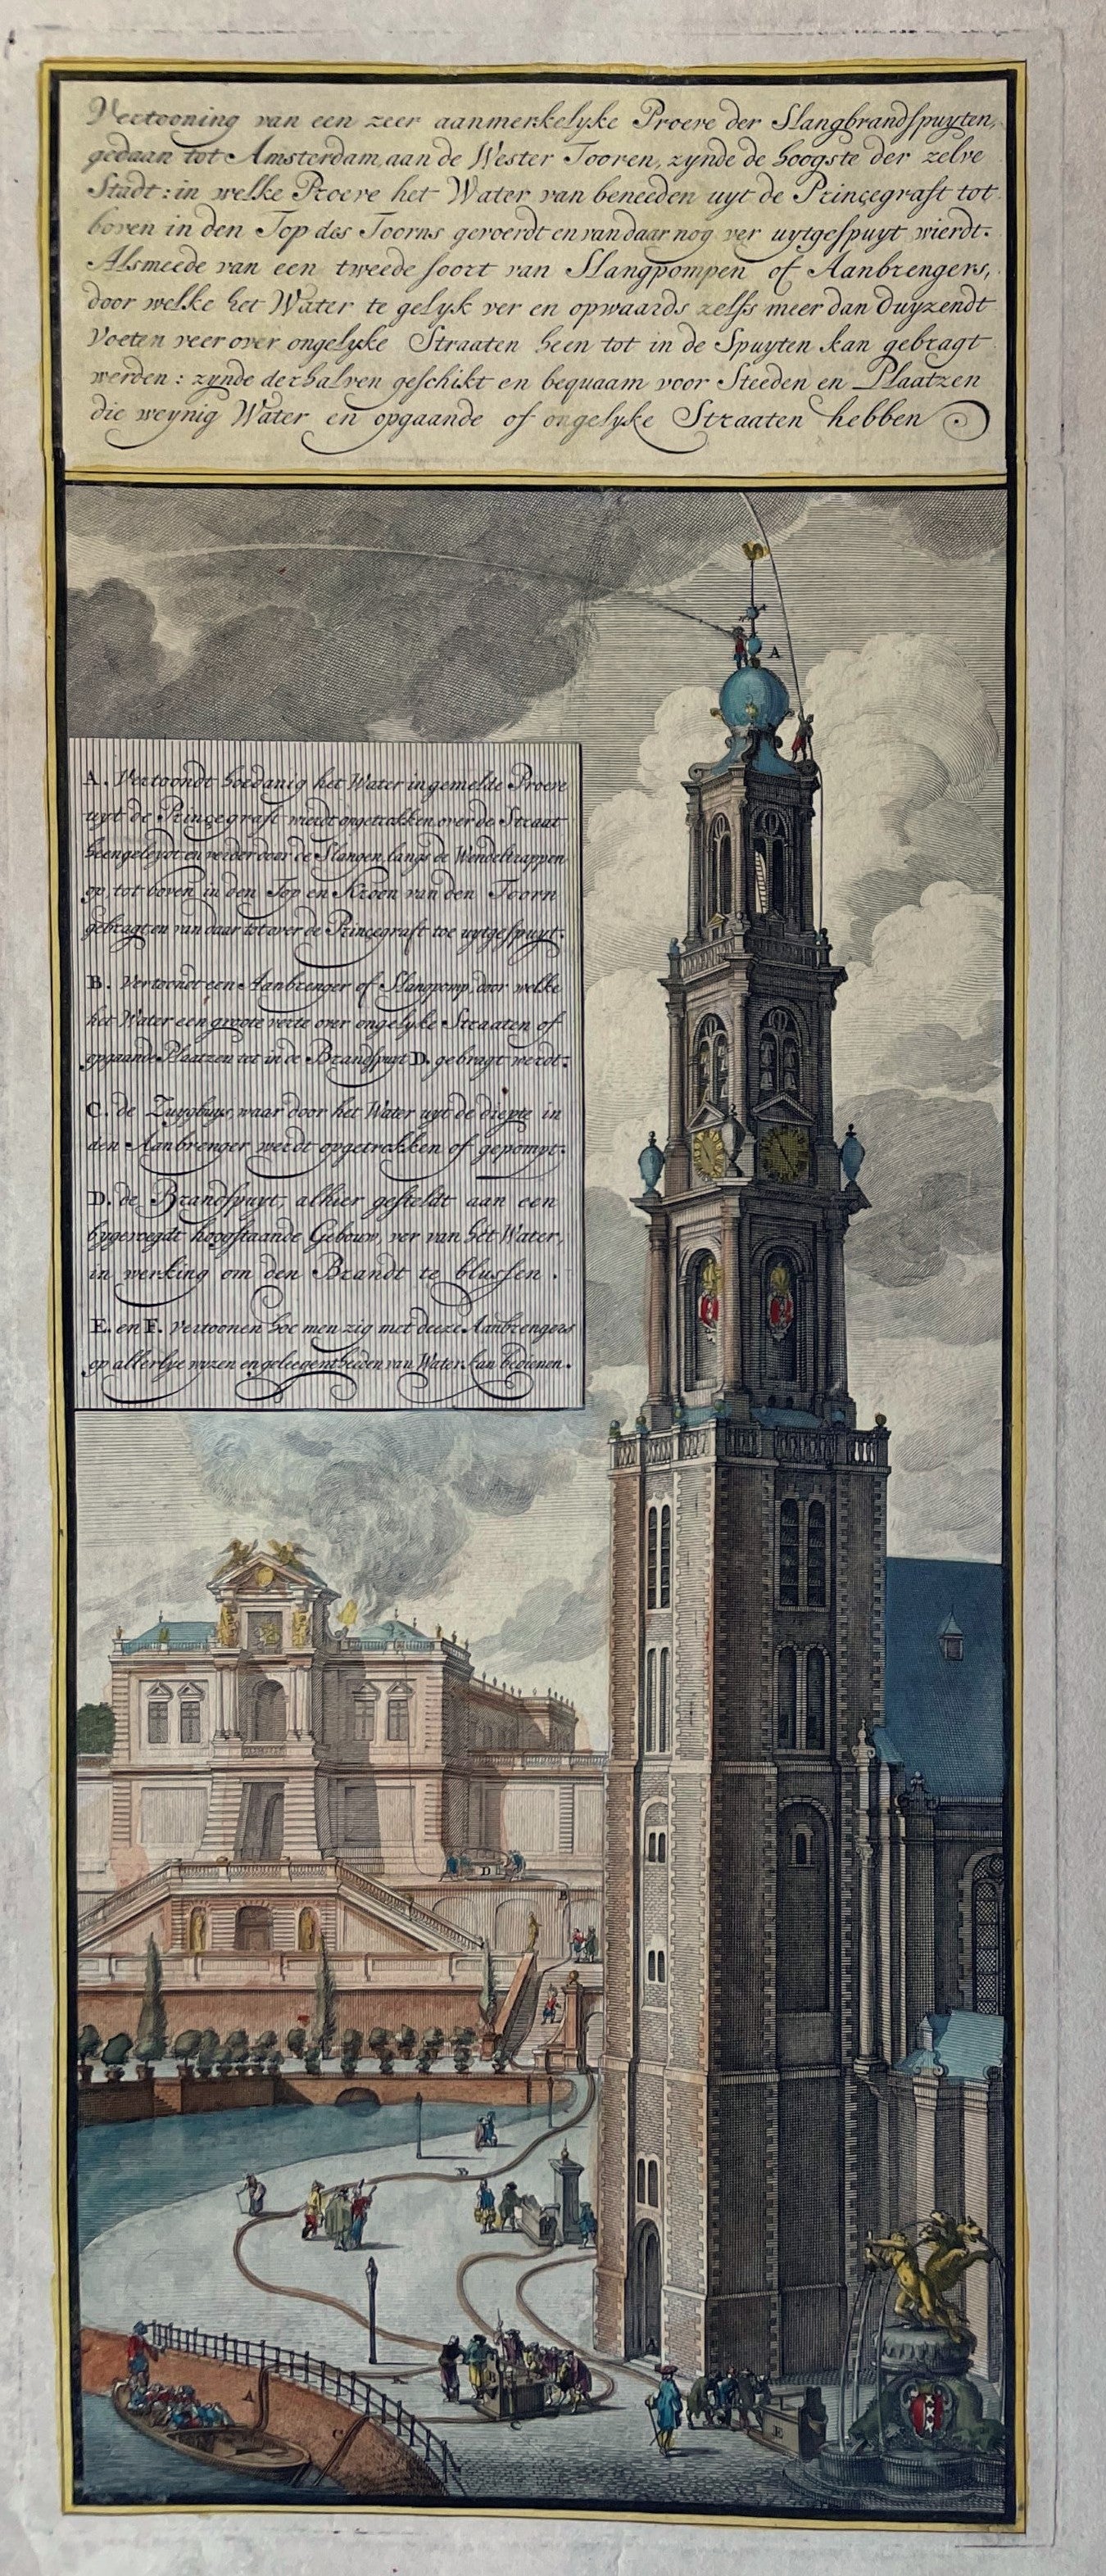 Vertooning van een zeer aanmerkelyke Proeve der Slangbrandspuyten,
gedaan tot Amsterdam, aan de Wester Tooren, zynde de hoogste der zelve
Stadt: in welke Proeve het Water van beneeden uyt de Princegraft tot
boven in den Top des Toorns gevoerdt en van daar nog ver uytgespuyt wierdt.
Alsmeede van een tweede soort van Slangpompen of Aanbrengers,
door welke het Water te gelyk ver en opwaards zelfs meer dan duyzendt
Voeten veer over ongelyke Straaten heen tot in de Spuyten kan gebragt
werden: zynde derhalven geschikt en bequaam voor Steeden en Plaatzen
die weynig Water en opgaande of ongelyke Straaten hebben
A
A. Vertoondt hoedanig het Water in gemelde Proeve
uyt de Princegraft wierdt opgetrokken over de Straat
heengeleydt en verder door de Slangen langs de Wendeltrappen
op, tot boven in den Top en Kroon van den Toorn
gebragt en van daar tot over de Princegraft toe uytgespuyt.
B. Vertoondt een Aanbrenger of Slangpomp, door welke
het Water een groote verte over ongelyke Straaten of
opgaande Plaatzen tot in de Brandspuyt D. gebragt werdt.
C. de Zuygbuys, waar door het Water uyt de diepte in
den Aanbrenger werdt opgetrokken of gepompt.
D. de Brandspuyt, alhier gesteldt aan een
bygevoegdt hoogstaande Gebouw, ver van het Water,
in werking om den Brandt te blussen.
E. en F. Vertoonen hoe men zig met deeze Aanbrengers
op allerlye wyzen en geleegentheeden van Water kan bedienen.
D
B
B
A
A
B
C
C
E